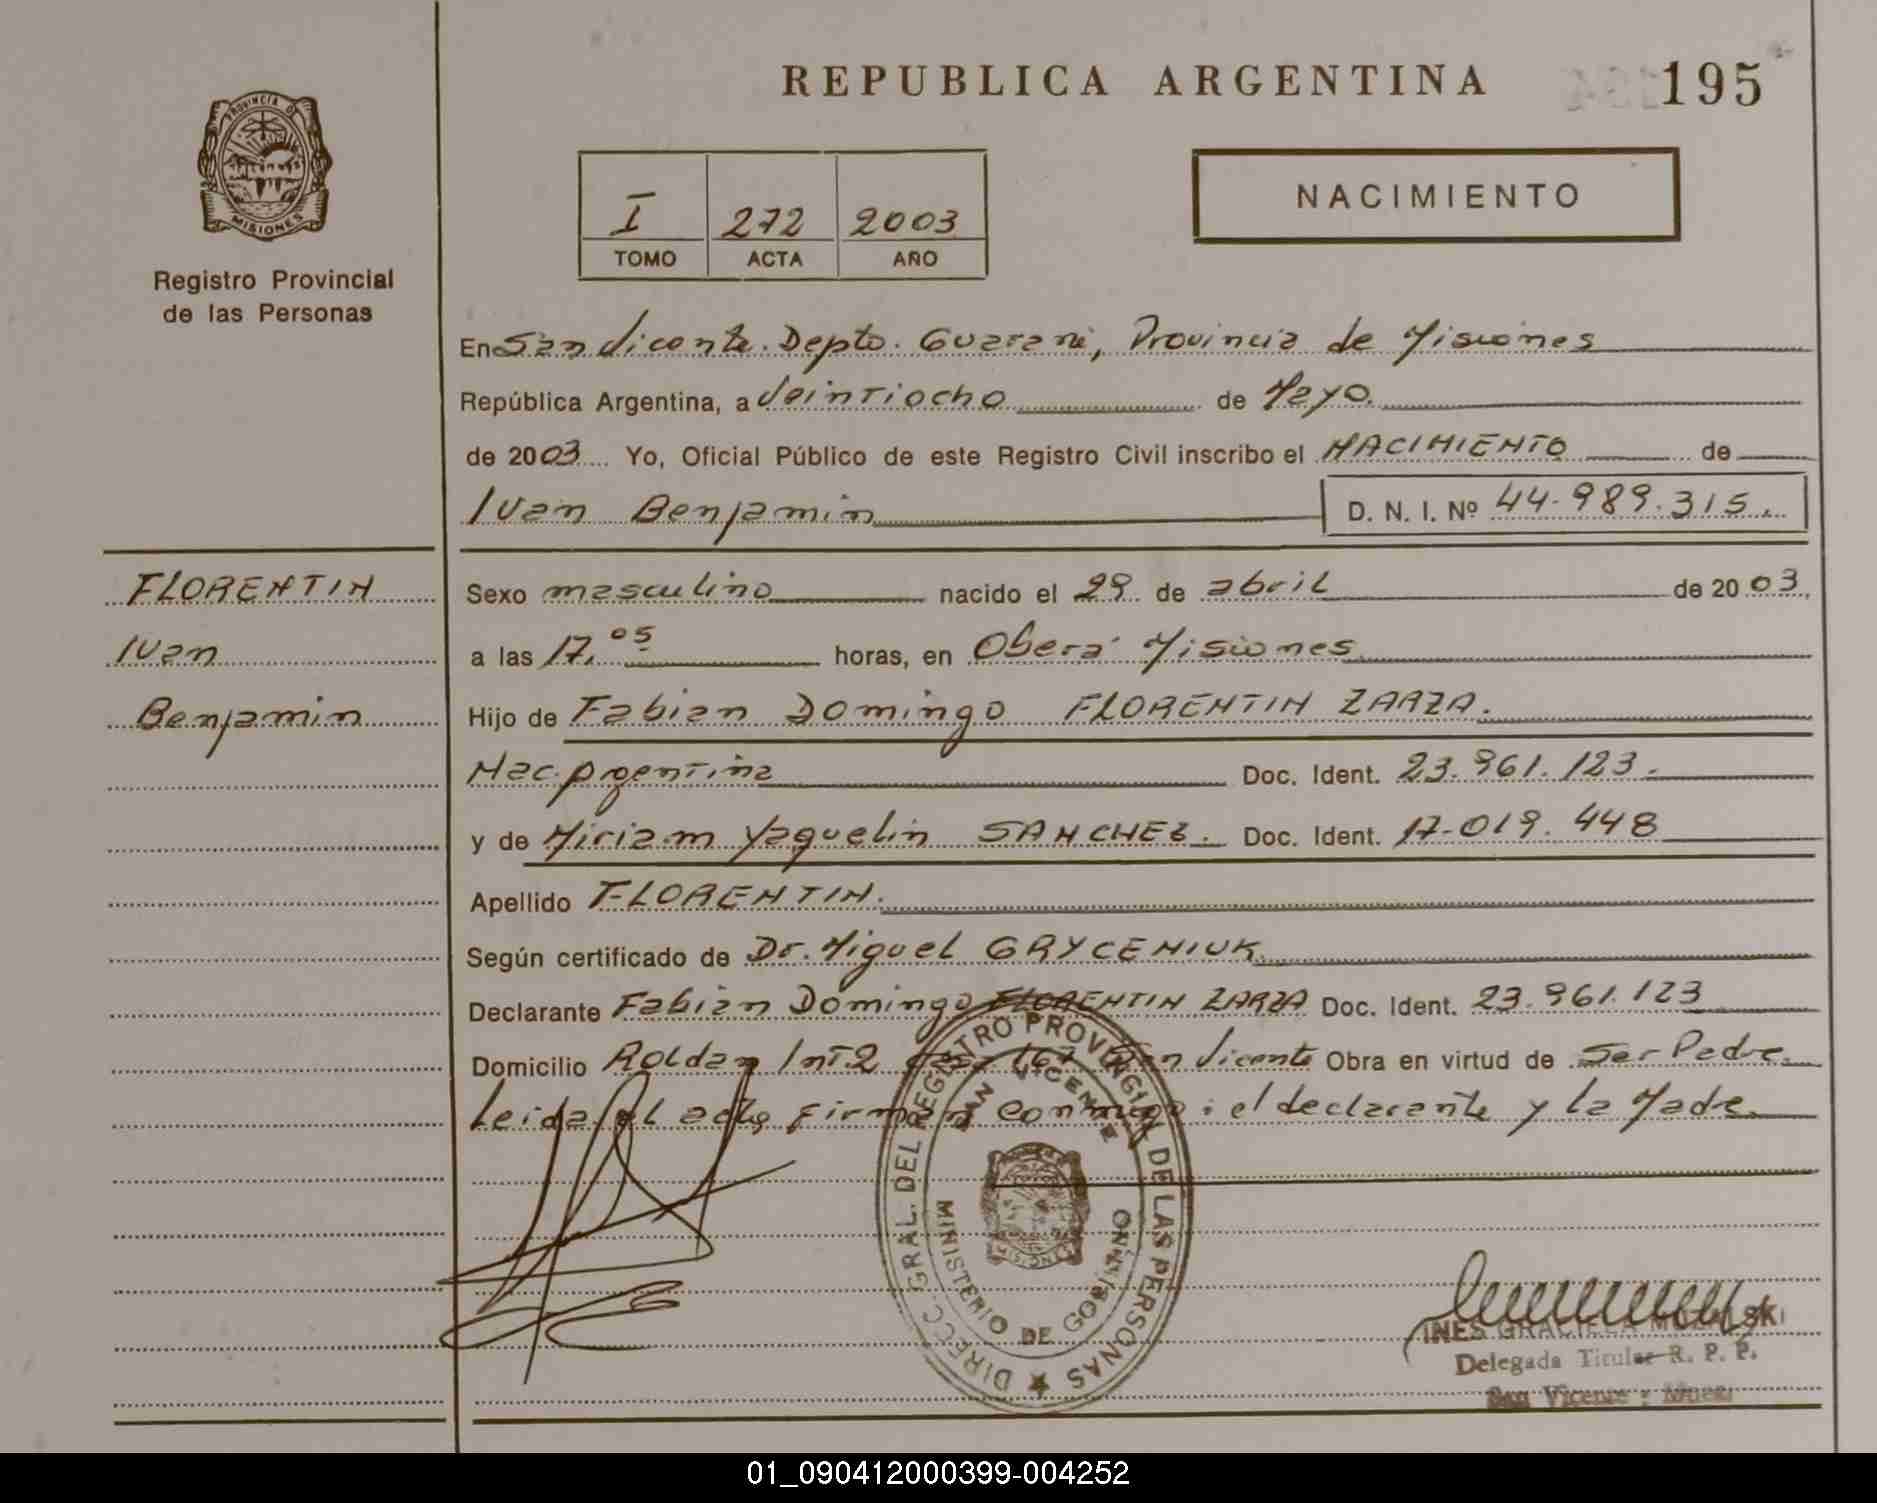 REPUBLICA ARGENTINA
195
PROVINCIA DE
MISIONES
Registro Provincial
de las Personas
I 272 2003
TOMO ACTA AÑO
NACIMIENTO
En San Vicente. Depto. Guarani, Provincia de Misiones
República Argentina, a Veintiocho de Mayo.
de 2003 Yo, Oficial Público de este Registro Civil inscribo el NACIMIENTO de
Ivan Benjamin D. N. I. Nº 44.989.315.
FLORENTIN
Ivan
Benjamin
Sexo masculino nacido el 29 de abril de 2003.
a las 17,05 horas, en Oberá Misiones
Hijo de Fabian Domingo FLORENTIN ZARZA.
Nac. Argentina Doc. Ident. 23.961.123.
y de Miriam Yaquelin SANCHEZ. Doc. Ident. 17.019.448
Apellido FLORENTIN.
Según certificado de Dr. Miguel GRYCENIUK
Declarante Fabian Domingo FLORENTIN ZARZA Doc. Ident. 23.961.123
Domicilio Roldan Int.2 San Vicente Obra en virtud de Ser Padre.
Leida el acta, firman conmigo: el declarante y la Madre.
DIRECC. GRAL. DEL REGISTRO PROVINCIAL DE LAS PERSONAS
SAN VICENTE
MISIONES
MINISTERIO DE GOBIERNO
INES GRACIELA
Delegada Titular R. P. P.
San Vicente - Mnes.
01_090412000399-004252